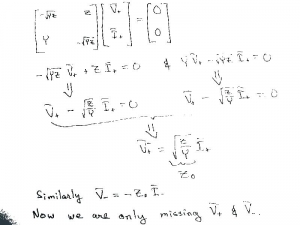 [-√YZ Z; Y -√YZ] [V̄₊; Ī₊] = [0; 0]
-√YZ V̄₊ + Z Ī₊ = 0 & Y V̄₊ - √YZ Ī₊ = 0
⇓ ⇓
V̄₊ - √(Z/Y) Ī₊ = 0 V̄₊ - √(Z/Y) Ī₊ = 0
⇓
V̄₊ = √(Z/Y) Ī₊
Z₀
Similarly V̄₋ = -Z₀ Ī₋
Now we are only missing V̄₊ & V̄₋.